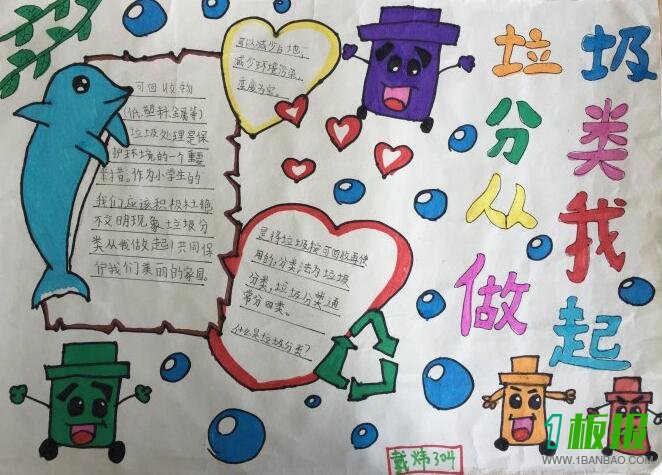 垃圾
分类
从我
做起
可以减少占地,
减少环境污染,
变废为宝。
可回收物
(纸.塑料.金属等)
垃圾处理是保
护环境的一个重要
举措。作为小学生的
我们应该积极杜绝
不文明现象垃圾分
类从我做起!共同保
护我们美丽的家园。
是将垃圾按可回收再使
用的,分类法为垃圾
分类,垃圾分类通
常分四类。
什么是垃圾分类?
戴炜304
1板报
WWW.1BANBAO.COM